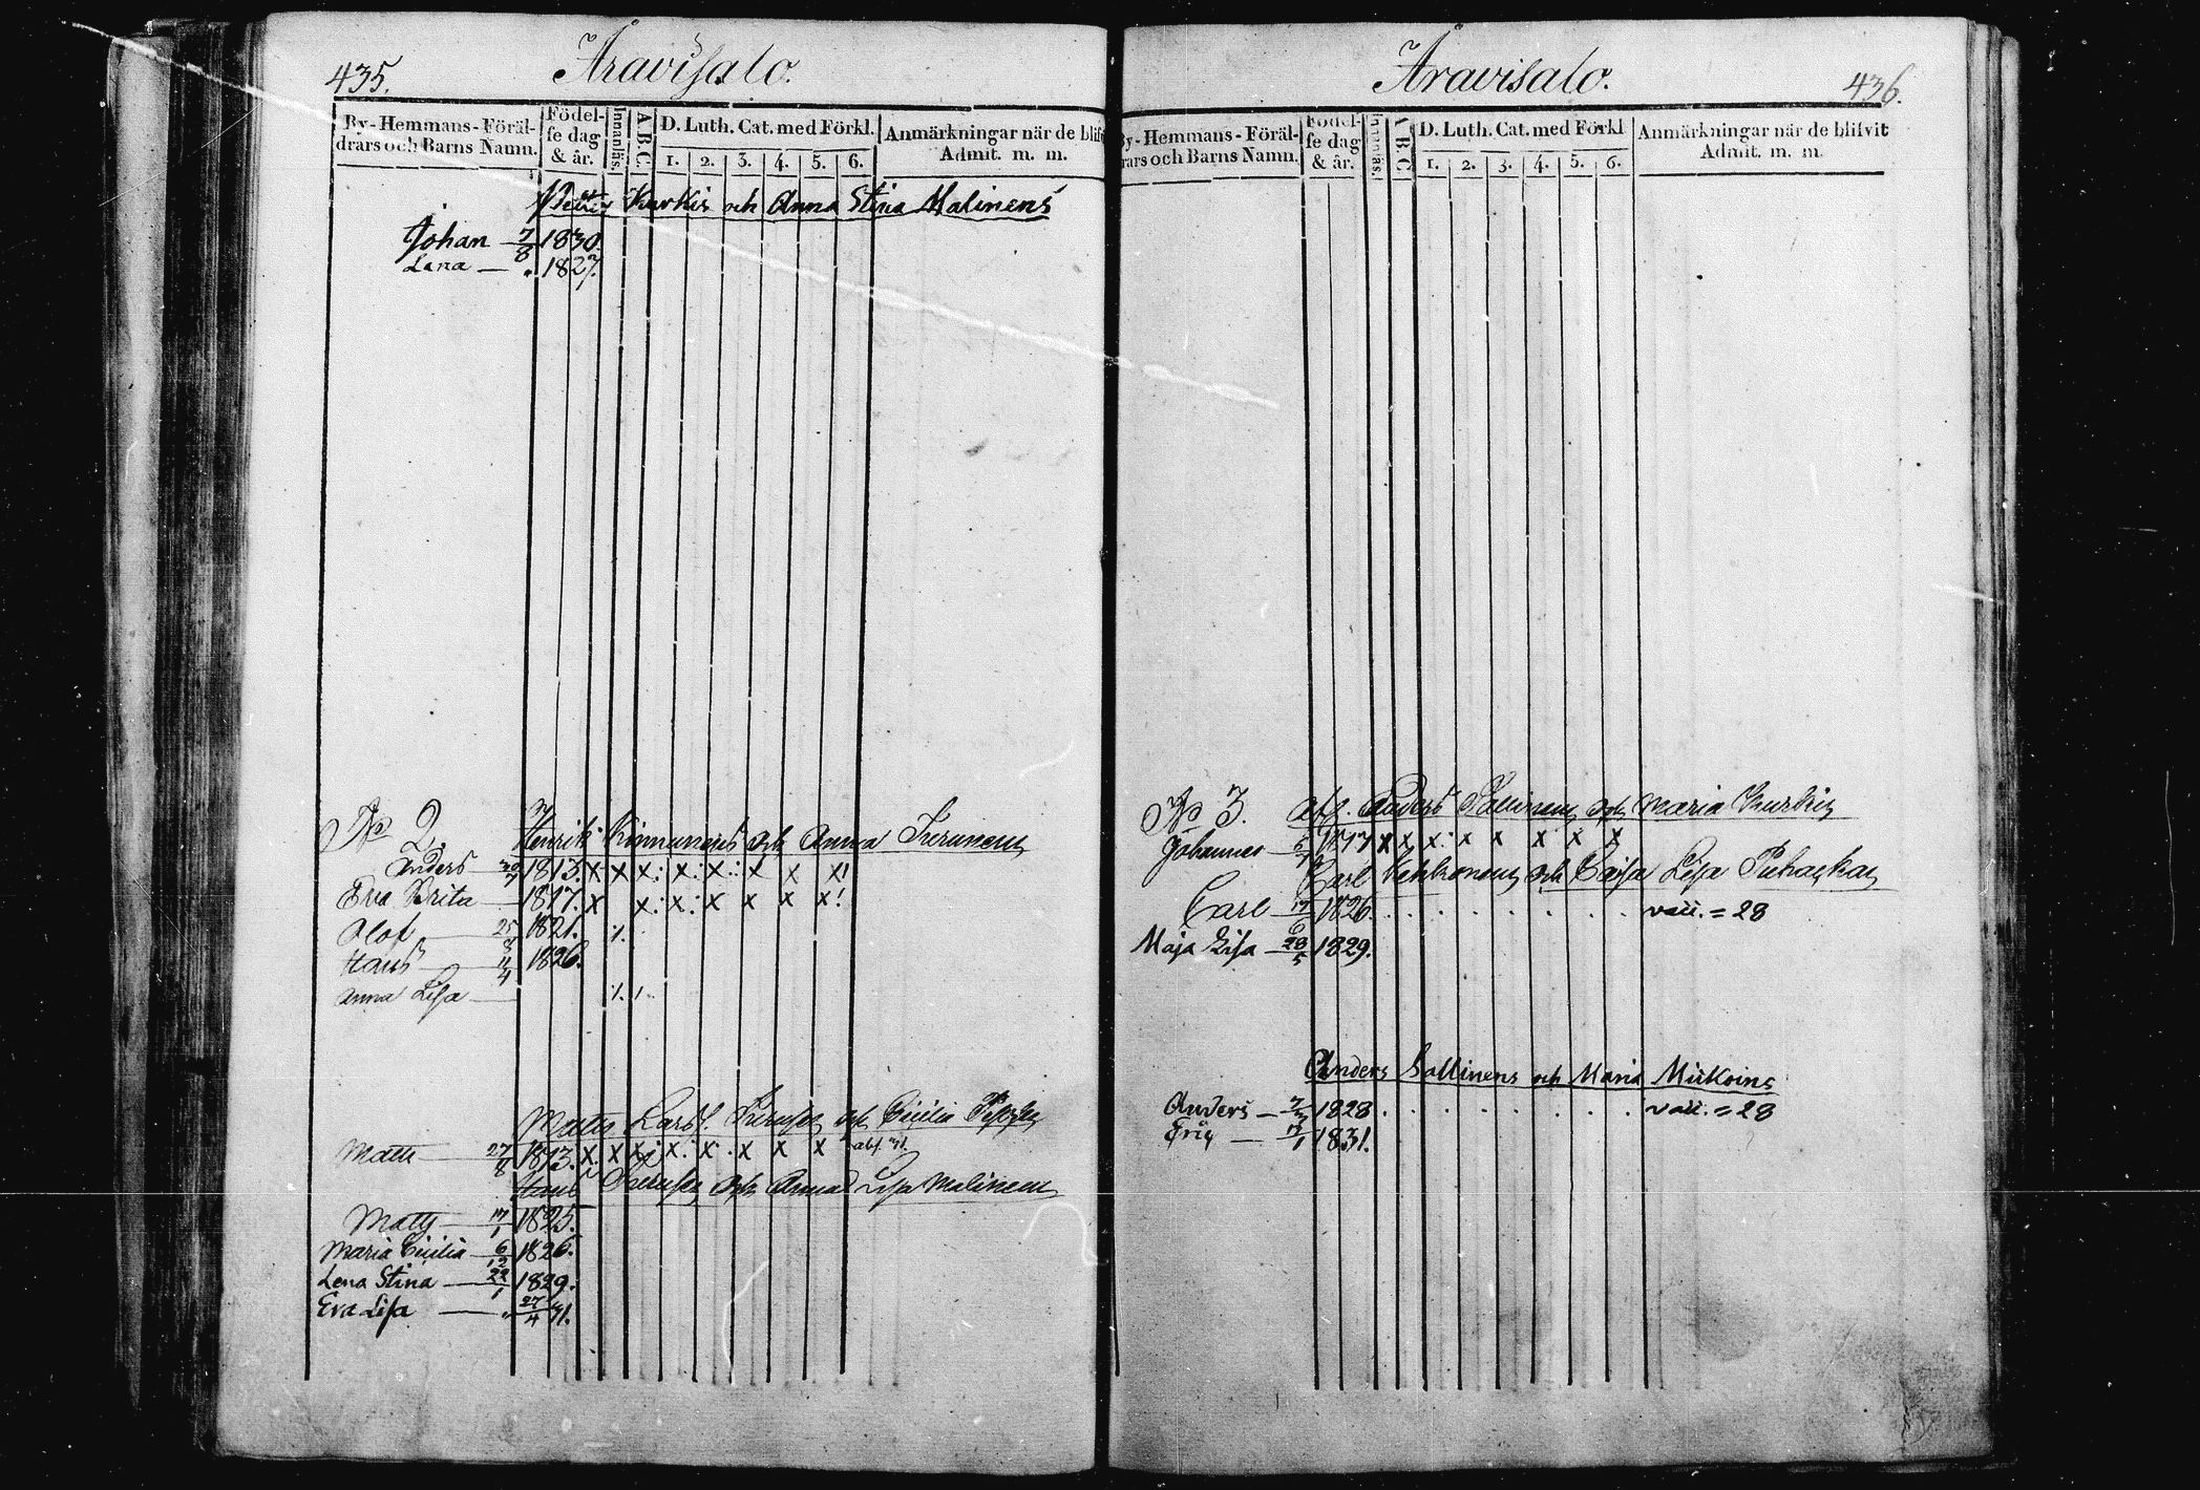 435.
Åravisalo.
By-Hemmans-Föräldrars och Barns Namn.
Födelse dag & år.
Innanläs.
A.B.C.
D. Luth. Cat. med Förkl.
1. 2. 3. 4. 5. 6.
Anmärkningar när de blif
Admit. m. m.
Petter Kurkis och Anna Stina Malinens
Johan — 7/8 1830.
Lena — „ 1827.
No 2. Henrik Kinnunens och Anna
Anders 1813. x x x: x: x: x x x!
Eva Brita 1817. x x: x: x x x x!
Olof 25/8 1821. ⁒
Hans 11/4 1826.
Anna Lisa — ⁒
Matts Larss. och Cicilia
Matts 27/8 1813. x x x x: x: x x x abs. 31.
Hans och Anna Lisa Malinens
Matts 17/1 1825.
Maria Cicilia 6/12 1826.
Lena Stina 22/1 1829.
Eva Lisa — „ 27/4 31.
Åravisalo.
436.
By-Hemmans-Föräl-
drars och Barns Namn.
Födelse dag & år.
Innanläs.
A B C
D. Luth. Cat. med Förkl
1. 2. 3. 4. 5. 6.
Anmärkningar när de blifvit
Admit. m. m.
No 3. Afl. Anders Sallinens och Maria Kurkis
Johannes 1817 x x x: x x x x x
Carl Vehkonens och Caisa Lisa
Carl 1826. . . . . . . . . vacc. = 28
Maja Lisa — 28/5 1829.
Anders Sallinens och Maria Miikoins
Anders — 7/3 1828 . . . . . . . . vacc. = 28
Eric — 1831.